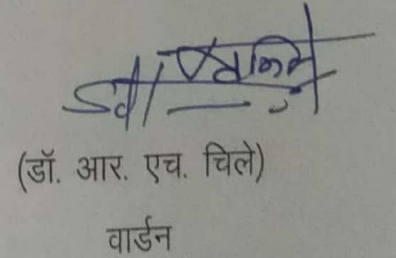 (डॉ. आर. एच. चिले)
वार्डन